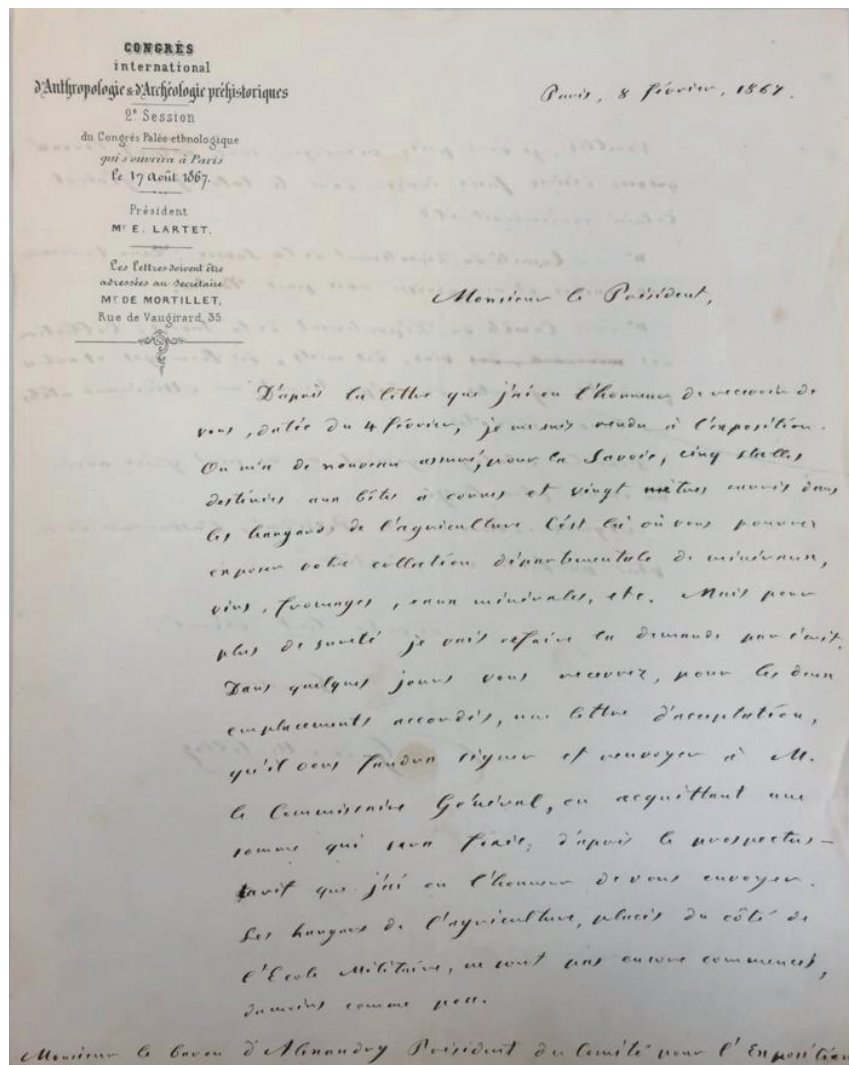 CONGRÈS
international
d'Anthropologie & d'Archéologie préhistoriques
2e Session
du Congrès Paléo-ethnologique
qui s'ouvrira à Paris
le 17 Août 1867.
Président
Mr E. LARTET.
Les Lettres doivent être
adressées au Secrétaire
Mr DE MORTILLET,
Rue de Vaugirard, 35
Paris, 8 février, 1867.
Monsieur le Président,
D'après la lettre que j'ai eu l'honneur de recevoir de
vous, datée du 4 février, je me suis rendu à l'exposition.
On m'a de nouveau assuré, pour la Savoie, cinq stalles
destinées aux bêtes à cornes et vingt mètres carrés dans
les hangars de l'agriculture. C'est là où vous pourrez
exposer votre collection départementale de minéraux,
vins, fromages, eaux minérales, etc. Mais pour
plus de sureté je vais refaire la demande par écrit.
Dans quelques jours vous recevrez, pour les deux
emplacements accordés, une lettre d'acceptation,
qu'il vous faudra signer et renvoyer à M.
le Commissaire Général, en acquittant une
somme qui sera fixée, d'après le prospectus-
tarif que j'ai eu l'honneur de vous envoyer.
Les hangars de l'agriculture, placés du côté de
l'Ecole Militaire, ne sont pas encore commencés,
du moins comme
Monsieur le baron d'Alexandry Président du Comité pour l'Exposition